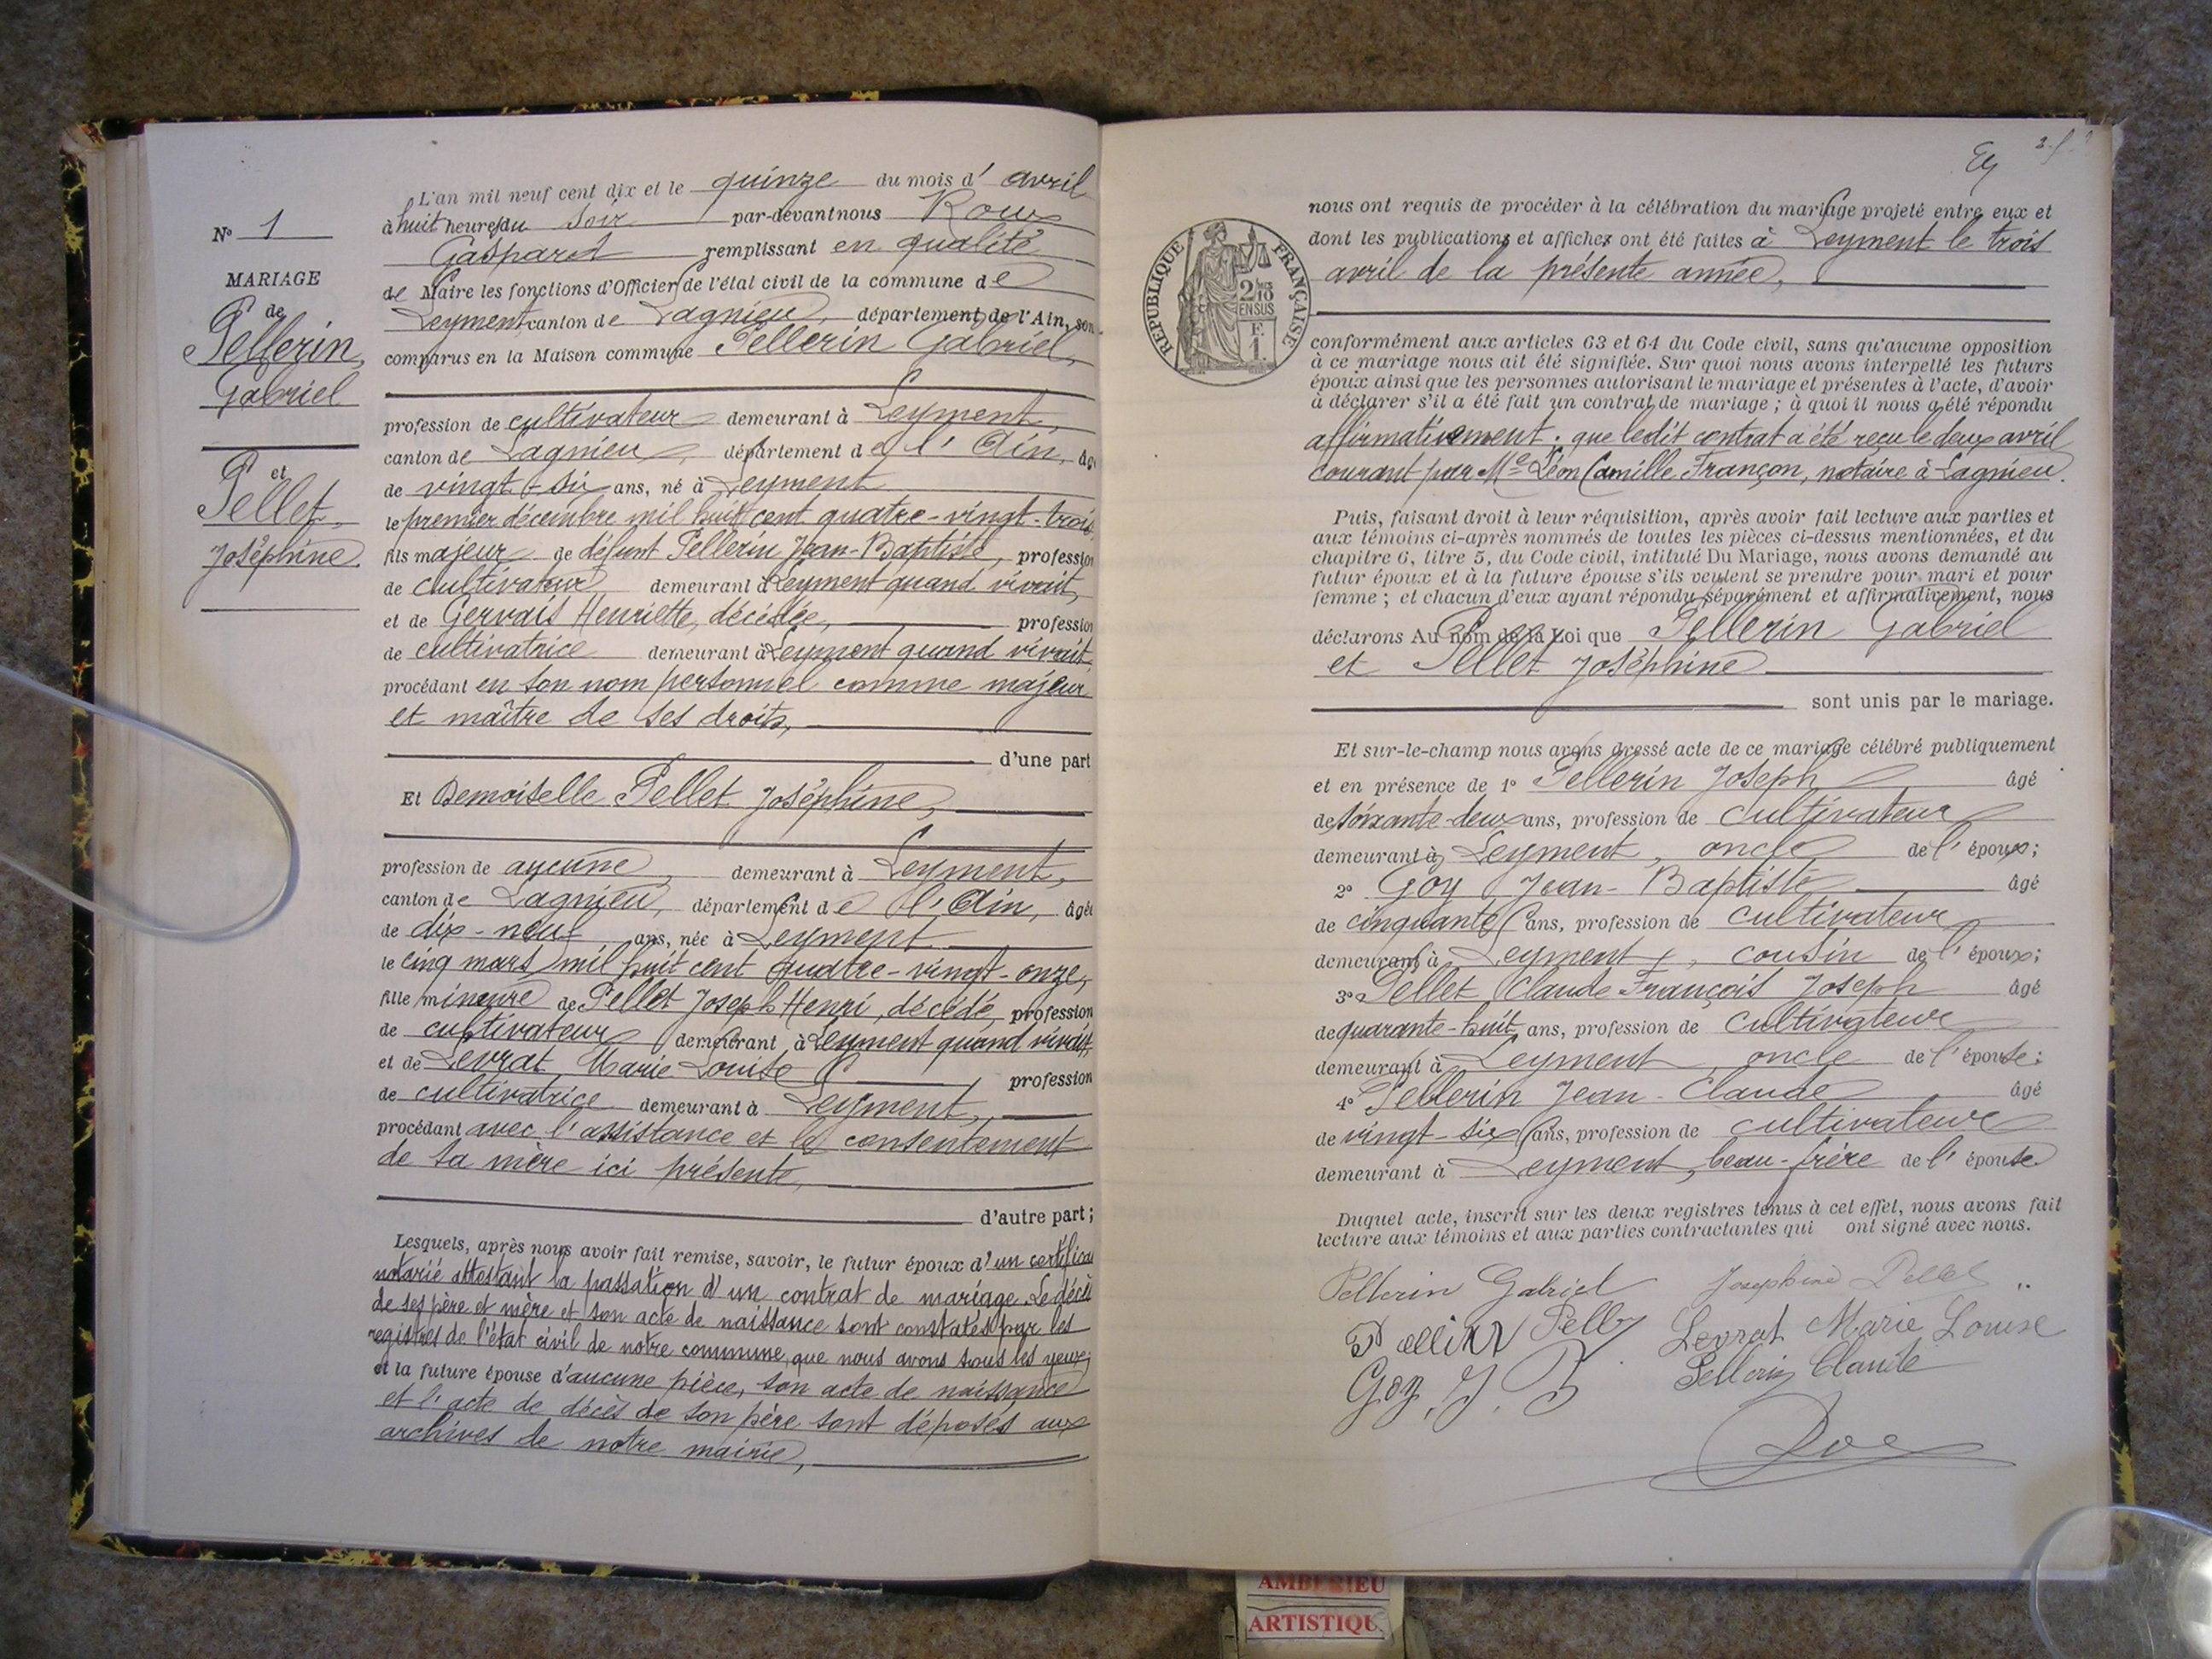 N° 1
MARIAGE
de
Pellerin,
Gabriel
et
Pellet,
Joséphine.
L'an mil neuf cent dix et le quinze du mois d' avril
à huit heures du soir par-devant nous Roux
Gaspard remplissant en qualité
de Maire les fonctions d'Officier de l'état civil de la commune de
Leyment canton de Lagnieu, département de l'Ain, son
comparus en la Maison commune Pellerin Gabriel,
profession de cultivateur demeurant à Leyment,
canton de Lagnieu, département de l'Ain, âgé
de vingt-six ans, né à Leyment
le premier décembre mil huit cent quatre-vingt-trois,
fils majeur de défunt Pellerin Jean-Baptiste, profession
de cultivateur demeurant à Leyment quand vivait,
et de Gervais Henriette, décédée, profession
de cultivatrice demeurant à Leyment quand vivait,
procédant en son nom personnel comme majeur
et maître de ses droits,
d'une part
Et Demoiselle Pellet Joséphine,
profession de aucune, demeurant à Leyment,
canton de Lagnieu, département de l'Ain, âgée
de dix-neuf ans, née à Leyment
le cinq mars mil huit cent quatre-vingt-onze,
fille mineure de Pellet Joseph Henri, décédé, profession
de cultivateur demeurant à Leyment quand vivait,
et de Levrat Marie Louise profession
de cultivatrice demeurant à Leyment,
procédant avec l'assistance et le consentement
de sa mère ici présente,
d'autre part;
Lesquels, après nous avoir fait remise, savoir, le futur époux d'un certificat
notarié attestant la passation d'un contrat de mariage. Le décès
de ses père et mère et son acte de naissance sont constatés par les
registres de l'état civil de notre commune, que nous avons sous les yeux;
et la future épouse d'aucune pièce, son acte de naissance
et l'acte de décès de son père sont déposés aux
archives de notre mairie,
nous ont requis de procéder à la célébration du mariage projeté entre eux et
dont les publications et affiches ont été faites à Leyment le trois
avril de la présente année,
REPUBLIQUE FRANÇAISE
2/10
EN SUS
F.
1.
conformément aux articles 63 et 64 du Code civil, sans qu'aucune opposition
à ce mariage nous ait été signifiée. Sur quoi nous avons interpellé les futurs
époux ainsi que les personnes autorisant le mariage et présentes à l'acte, d'avoir
à déclarer s'il a été fait un contrat de mariage; à quoi il nous a été répondu
affirmativement; que ledit contrat a été reçu le deux avril
courant par Me Léon Camille Françon, notaire à Lagnieu.
Puis, faisant droit à leur réquisition, après avoir fait lecture aux parties et
aux témoins ci-après nommés de toutes les pièces ci-dessus mentionnées, et du
chapitre 6, titre 5, du Code civil, intitulé Du Mariage, nous avons demandé au
futur époux et à la future épouse s'ils veulent se prendre pour mari et pour
femme; et chacun d'eux ayant répondu séparément et affirmativement, nous
déclarons Au Nom de la Loi que Pellerin Gabriel
et Pellet Joséphine
sont unis par le mariage.
Et sur-le-champ nous avons dressé acte de ce mariage célébré publiquement
et en présence de 1° Pellerin Joseph âgé
de soixante-deux ans, profession de cultivateur
demeurant à Leyment, oncle de l'époux;
2° Goy Jean-Baptiste âgé
de cinquante ans, profession de cultivateur
demeurant à Leyment, cousin de l'époux;
3° Pellet Claude François Joseph âgé
de quarante-huit ans, profession de cultivateur
demeurant à Leyment, oncle de l'épouse;
4° Pellerin Jean-Claude âgé
de vingt-six ans, profession de cultivateur
demeurant à Leyment, beau-frère de l'épouse
Duquel acte, inscrit sur les deux registres tenus à cet effet, nous avons fait
lecture aux témoins et aux parties contractantes qui ont signé avec nous.
Pellerin Gabriel Joséphine Pellet
Levrat Marie Louise
Goy. J. B Pellerin Claude
AMBERIEU
ARTISTIQU